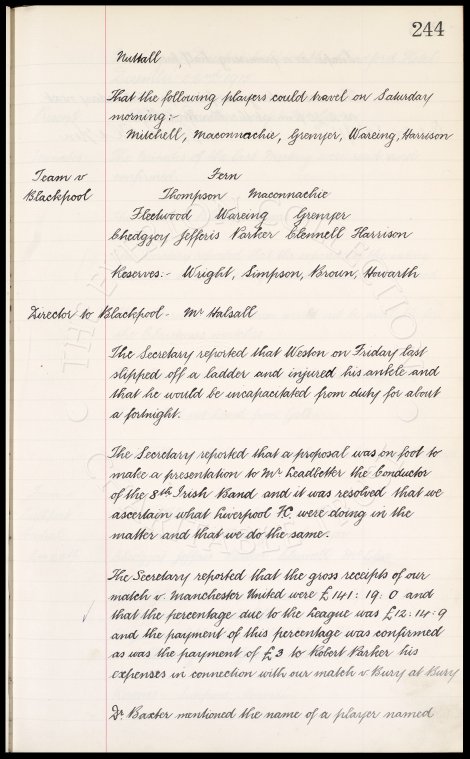 244
Nuttall
That the following players could travel on Saturday
morning:-
Mitchell, Maconnachie, Grenyer, Wareing, Harrison
Team v Fern
Blackpool Thompson Maconnachie
Fleetwood Wareing Grenyer
Chedgzoy Jefferis Parker Clennell Harrison
Reserves:- Wright, Simpson, Brown, Howarth
Director to Blackpool - Mr Halsall
The Secretary reported that Weston on Friday last
slipped off a ladder and injured his ankle and
that he would be incapacitated from duty for about
a fortnight.
The Secretary reported that a proposal was on foot to
make a presentation to Mr Leadbetter the Conductor
of the 8th Irish Band and it was resolved that we
ascertain what Liverpool FC. were doing in the
matter and that we do the same.
The Secretary reported that the gross receipts of our
match v Manchester United were £141: 19: 0 and
that the percentage due to the League was £12: 14: 9
and the payment of this percentage was confirmed
as was the payment of £3 to Robert Parker his
expenses in connection with our match v Bury at Bury
Dr. Baxter mentioned the name of a player named